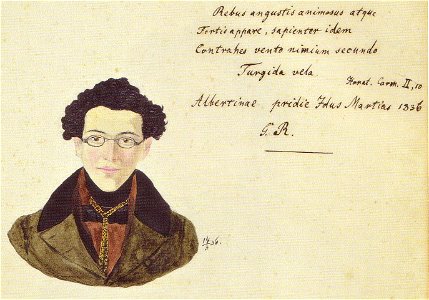 Rebus angustis animosus atque
Fortis appare, sapienter idem
Contrahes vento nimium secundo
Turgida vela
Horat. Carm. II, 10
Albertinae pridie Idus Martias 1836
G. R.